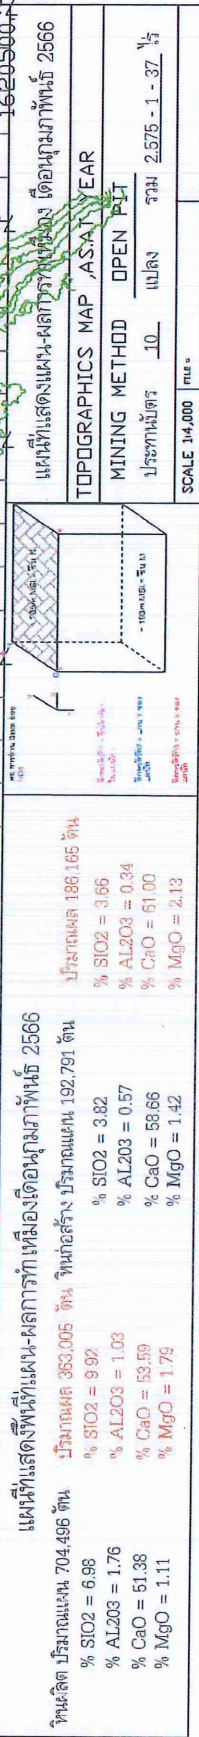 แผนที่แสดงพื้นที่แผน-ผลการทำเหมืองเดือนกุมภาพันธ์ 2566
หินผลิต ปริมาณแผน 704,496 ตัน
% SIO2 = 6.98
% AL2O3 = 1.76
% CaO = 51.38
% MgO = 1.11
ปริมาณผล 363,005 ตัน
% SIO2 = 9.92
% AL2O3 = 1.03
% CaO = 53.59
% MgO = 1.79
หินก่อสร้าง ปริมาณแผน 192,791 ตัน
% SIO2 = 3.82
% AL2O3 = 0.57
% CaO = 58.66
% MgO = 1.42
ปริมาณผล 186,165 ตัน
% SIO2 = 3.66
% AL2O3 = 0.34
% CaO = 61.00
% MgO = 2.13
1620500
แผนที่แสดงแผน-ผลการทำเหมือง เดือนกุมภาพันธ์ 2566
TOPOGRAPHICS MAP ,AS.AT YEAR
MINING METHOD OPEN PIT
ประทานบัตร 10 แปลง รวม 2,575 - 1 - 37 ไร่
SCALE 1:4,000
FILE :